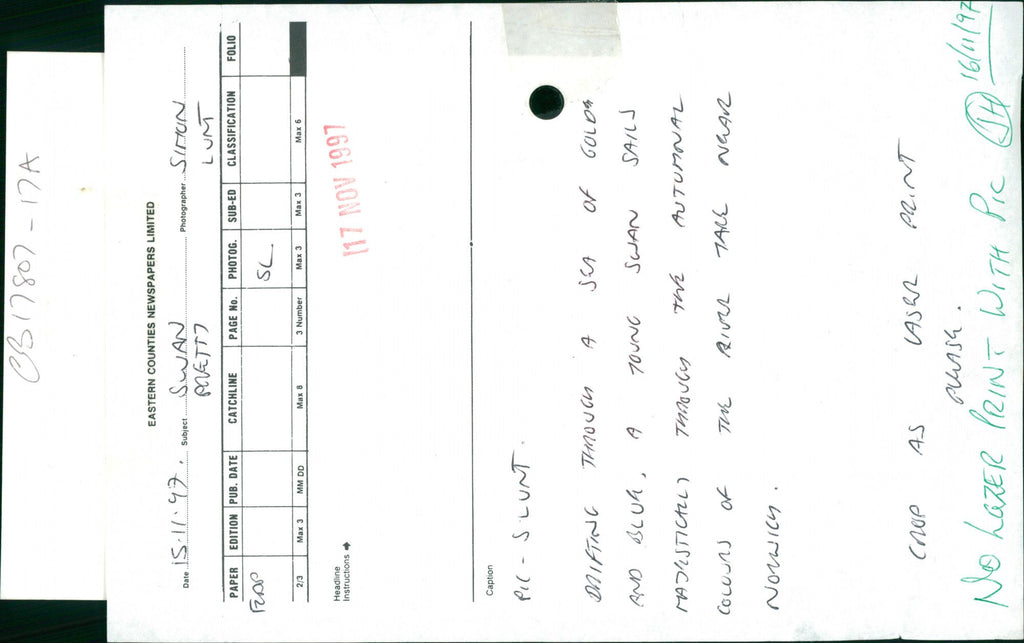 CB17807-17A
EASTERN COUNTIES NEWSPAPERS LIMITED
Date 15.11.97. Subject SWAN Photographer SIMON
PRETTY LUNT
PAPER EDITION PUB. DATE CATCHLINE PAGE No. PHOTOG. SUB-ED CLASSIFICATION FOLIO
SL
2/3 Max 3 MM DD Max 8 3 Number Max 3 Max 3 Max 6
Headline
Instructions ➔
17 NOV 1997
Caption
PIC - S LUNT.
DRIFTING THROUGH A SEA OF GOLDS
AND BLUE, A YOUNG SWAN SAILS
MAJESTICALLY THROUGH THE AUTUMNAL
COLOURS OF THE RIVER YARE NEAR
NORWICH.
CROP AS LASER PRINT
PLEASE.
NO LAZER PRINT WITH PIC JH 16/11/97